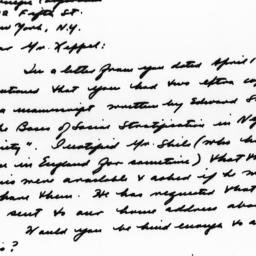 Fifth St.
New York, N.Y.
Dear Mr. Keppel:
In a letter from you dated April 1
that you had two extra co
a manuscript written by Edward S
he Bases of Social Stratification in N
iety". I notified Mr. Shils (who h
n in England for sometime) that th
were available & asked if he w
have them. He has requested that
sent to our home address abo
Would you be kind enough to a
s?